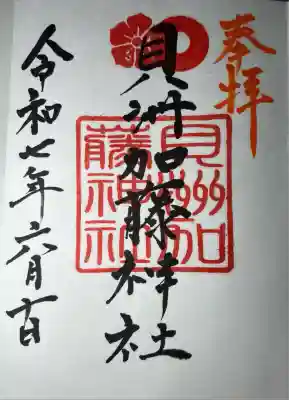 奉拝
貝洲加藤神社
貝州加
藤神社
令和七年六月十日